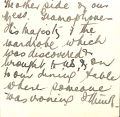 other side of our
new Gramophone
His Majesty & the
wardrobe which
was discovered
brought to us by an
to our dining table
where someone
was wooing I think